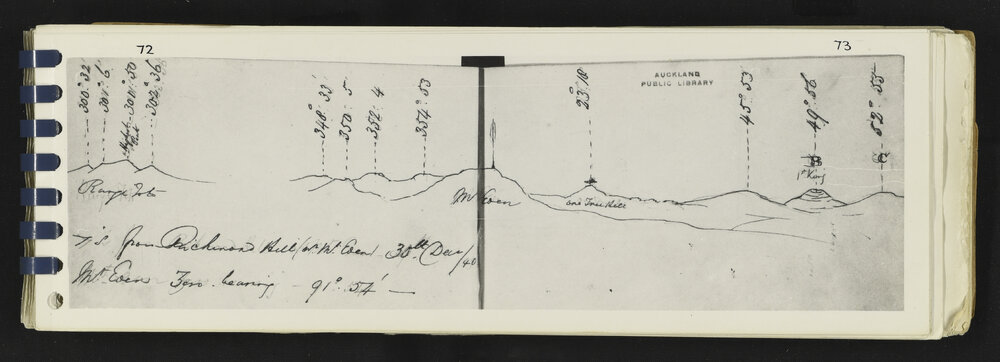 72
73
300°. 32
301°. 6
301°. 50
302°. 36
348°. 33'
350°. 5
352°. 4
354°. 53
23°. 18
45°. 53
49°. 56
52°. 55
AUCKLAND
PUBLIC LIBRARY
B
C
1st King
Mt Eden
one Tree Hill
from Richmond Hill (or Mt Eden) 30th Decr/40
Mt Eden Zero. bearing - 91°. 54' —